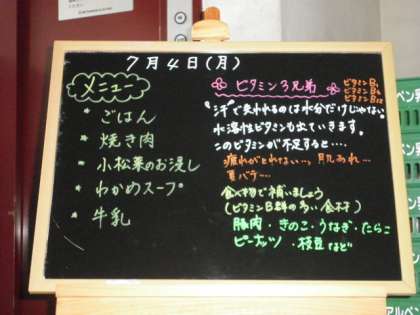 7月4日(月)
メニュー
* ごはん
* 焼き肉
* 小松菜のお浸し
* わかめスープ
* 牛乳
ビタミン3兄弟
ビタミンB1
ビタミンB6
ビタミンB12
"汗"で失われるのは水分だけじゃない。
水溶性ビタミンも出ていきます。
このビタミンが不足すると‥‥
疲れがとれない…、肌あれ…
夏バテ…
食べ物で補いましょう
(ビタミンB群の多い食材)
豚肉・きのこ・うなぎ・たらこ
ピーナッツ・枝豆など